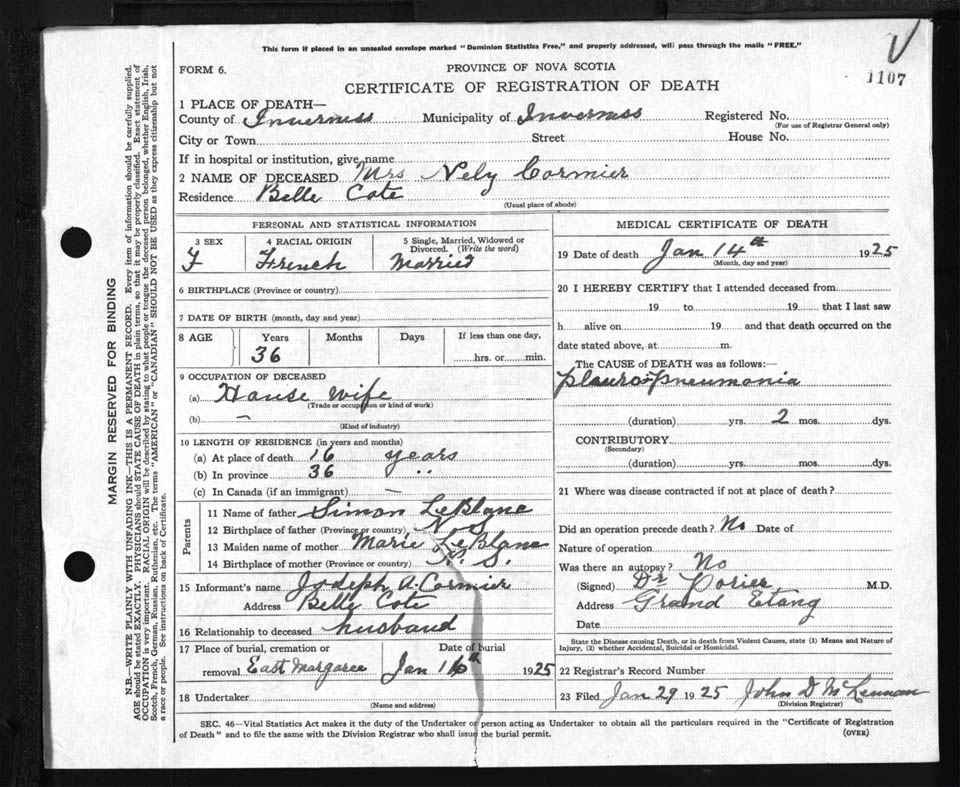 This form if placed in an unsealed envelope marked "Dominion Statistics Free," and properly addressed, will pass through the mails "FREE."
FORM 6.
PROVINCE OF NOVA SCOTIA
1107
CERTIFICATE OF REGISTRATION OF DEATH
1 PLACE OF DEATH—
County of Inverness Municipality of Inverness Registered No.
(For use of Registrar General only)
City or Town Street House No.
If in hospital or institution, give name
2 NAME OF DECEASED Mrs Nely Cormier
Residence Belle Cote
(Usual place of abode)
PERSONAL AND STATISTICAL INFORMATION
3 SEX 4 RACIAL ORIGIN 5 Single, Married, Widowed or Divorced. (Write the word)
F French Married
6 BIRTHPLACE (Province or country)
7 DATE OF BIRTH (month, day and year)
8 AGE Years Months Days If less than one day,
36 hrs. or min.
9 OCCUPATION OF DECEASED
(a) House wife
(Trade or occupation or kind of work)
(b) —
(Kind of industry)
10 LENGTH OF RESIDENCE (in years and months)
(a) At place of death 16 years
(b) In province 36 "
(c) In Canada (if an immigrant) —
Parents
11 Name of father Simon LeBlanc
12 Birthplace of father (Province or country) N. S.
13 Maiden name of mother Marie LeBlanc
14 Birthplace of mother (Province or country) N. S.
15 Informant's name Joseph A. Cormier
Address Belle Cote
16 Relationship to deceased husband
17 Place of burial, cremation or Date of burial
removal East Margaree Jan 16th 1925
18 Undertaker
(Name and address)
MEDICAL CERTIFICATE OF DEATH
19 Date of death Jan 14th 1925
(Month, day and year)
20 I HEREBY CERTIFY that I attended deceased from
19 to 19 that I last saw
h alive on 19 and that death occurred on the
date stated above, at m.
The CAUSE OF DEATH was as follows:
Plauro-Pneumonia
(duration) yrs. 2 mos. dys.
CONTRIBUTORY
(Secondary)
(duration) yrs. mos. dys.
21 Where was disease contracted if not at place of death?
Did an operation precede death? No Date of
Nature of operation
Was there an autopsy? No
(Signed) Dr Porier M.D.
Address Grand Etang
Date
State the Disease causing Death, or in death from Violent Causes, state (1) Means and Nature of
Injury, (2) whether Accidental, Suicidal or Homicidal.
22 Registrar's Record Number
23 Filed Jan 29 1925 John D McLennan
(Division Registrar)
SEC. 46—Vital Statistics Act makes it the duty of the Undertaker or person acting as Undertaker to obtain all the particulars required in the "Certificate of Registration
of Death" and to file the same with the Division Registrar who shall issue the burial permit.
(OVER)
MARGIN RESERVED FOR BINDING
N.B.—WRITE PLAINLY WITH UNFADING INK—THIS IS A PERMANENT RECORD. Every item of information should be carefully supplied.
AGE should be stated EXACTLY. PHYSICIANS should STATE CAUSE OF DEATH in plain terms, so that it may be properly classified. Exact statement of
OCCUPATION is very important. RACIAL ORIGIN will be described by stating to what people or tongue the deceased person belonged, whether English, Irish,
Scotch, French, German, Russian, Ruthenian, etc. The terms "AMERICAN" or "CANADIAN" SHOULD NOT BE USED as they express citizenship but not
a race or people. See instructions on back of Certificate.